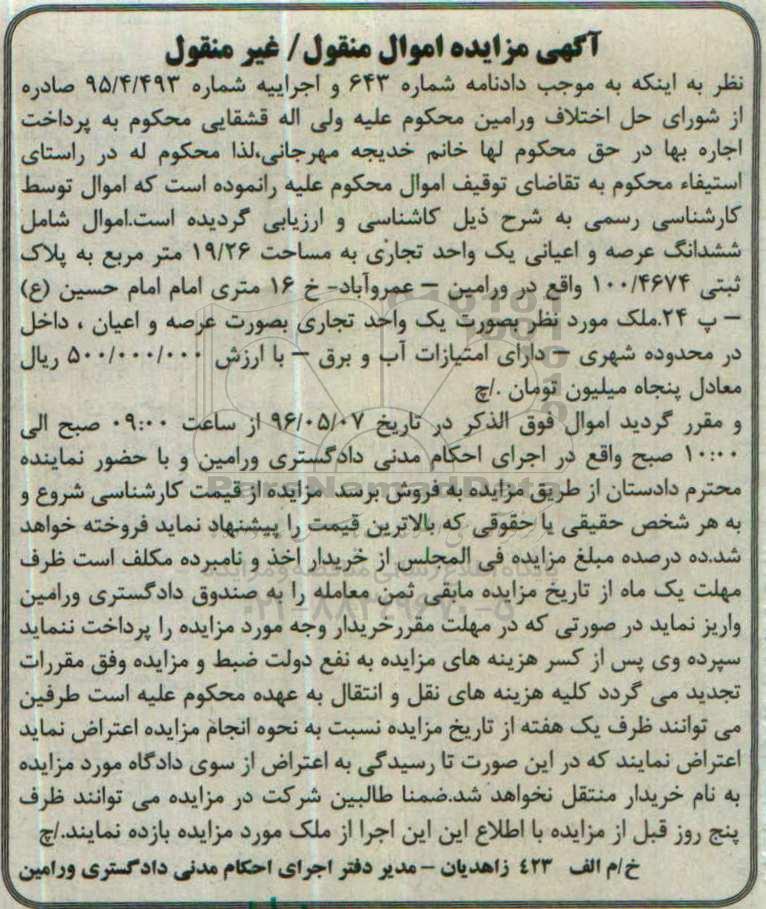 آگهی مزایده اموال منقول/ غیر منقول
نظر به اینکه به موجب دادنامه شماره ۶۴۳ و اجراییه شماره ۹۵/۴/۴۹۳ صادره
از شورای حل اختلاف ورامین محکوم علیه ولی اله قشقایی محکوم به پرداخت
اجاره بها در حق محکوم لها خانم خدیجه مهرجانی،لذا محکوم له در راستای
استیفاء محکوم به تقاضای توقیف اموال محکوم علیه رانموده است که اموال توسط
کارشناسی رسمی به شرح ذیل کاشناسی و ارزیابی گردیده است.اموال شامل
ششدانگ عرصه و اعیانی یک واحد تجاری به مساحت ۱۹/۲۶ متر مربع به پلاک
ثبتی ۱۰۰/۴۶۷۴ واقع در ورامین – عمروآباد- خ ۱۶ متری امام امام حسین (ع)
– پ ۲۴.ملک مورد نظر بصورت یک واحد تجاری بصورت عرصه و اعیان ، داخل
در محدوده شهری – دارای امتیازات آب و برق – با ارزش ۵۰۰/۰۰۰/۰۰۰ ریال
معادل پنجاه میلیون تومان ./چ
و مقرر گردید اموال فوق الذکر در تاریخ ۹۶/۰۵/۰۷ از ساعت ۰۹:۰۰ صبح الی
۱۰:۰۰ صبح واقع در اجرای احکام مدنی دادگستری ورامین و با حضور نماینده
محترم دادستان از طریق مزایده به فروش برسد. مزایده از قیمت کارشناسی شروع و
به هر شخص حقیقی یا حقوقی که بالاترین قیمت را پیشنهاد نماید فروخته خواهد
شد.ده درصده مبلغ مزایده فی المجلس از خریدار اخذ و نامبرده مکلف است ظرف
مهلت یک ماه از تاریخ مزایده مابقی ثمن معامله را به صندوق دادگستری ورامین
واریز نماید در صورتی که در مهلت مقررخریدار وجه مورد مزایده را پرداخت ننماید
سپرده وی پس از کسر هزینه های مزایده به نفع دولت ضبط و مزایده وفق مقررات
تجدید می گردد کلیه هزینه های نقل و انتقال به عهده محکوم علیه است طرفین
می توانند ظرف یک هفته از تاریخ مزایده نسبت به نحوه انجام مزایده اعتراض نماید
اعتراض نمایند که در این صورت تا رسیدگی به اعتراض از سوی دادگاه مورد مزایده
به نام خریدار منتقل نخواهد شد.ضمنا طالبین شرکت در مزایده می توانند ظرف
پنج روز قبل از مزایده با اطلاع این این اجرا از ملک مورد مزایده بازده نمایند./چ
خ/م الف ۴۲۳ زاهدیان – مدیر دفتر اجرای احکام مدنی دادگستری ورامین
ParsNamadData